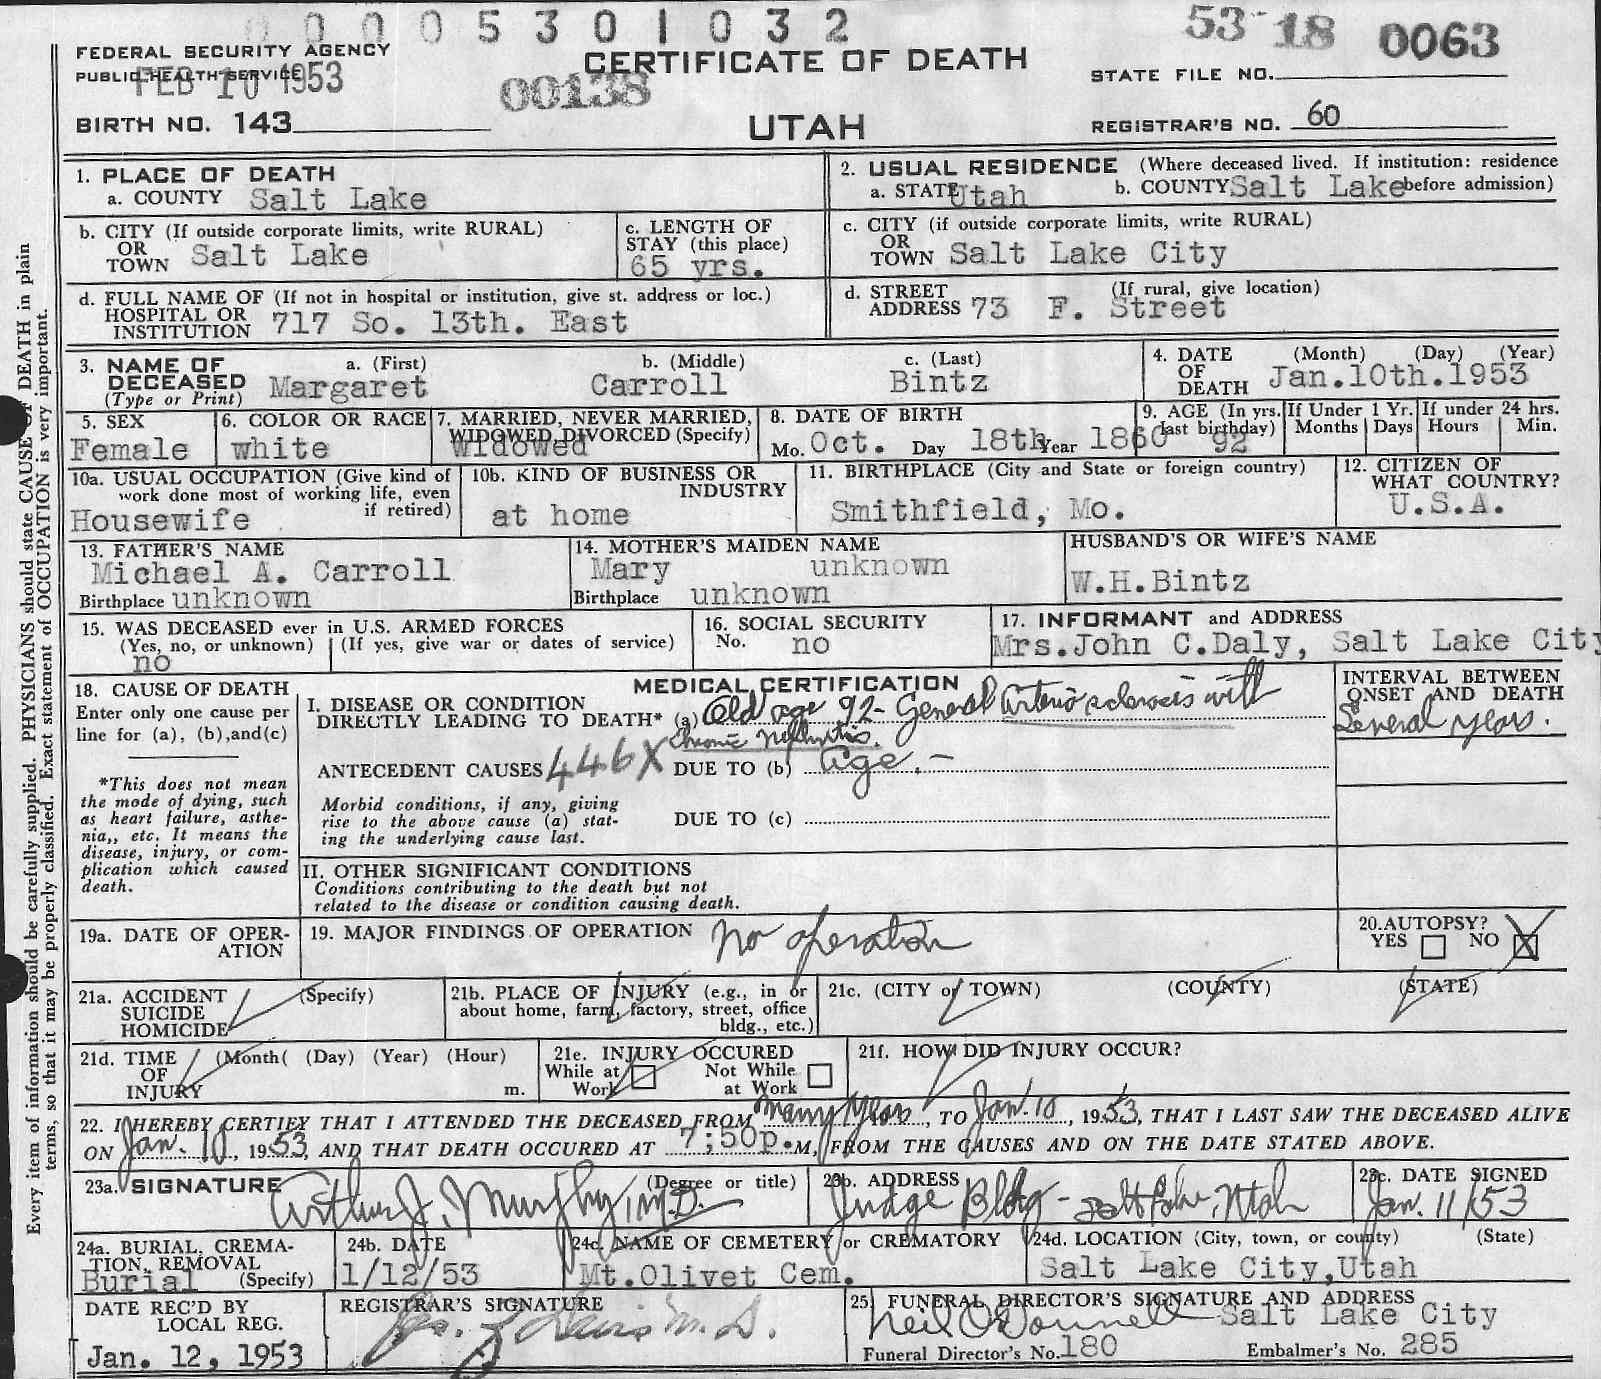 0 0 0 0 5 3 0 1 0 3 2
53-18 0063
FEDERAL SECURITY AGENCY
PUBLIC HEALTH SERVICE
FEB 10 1953
CERTIFICATE OF DEATH
STATE FILE NO.
00138
BIRTH NO. 143
UTAH
REGISTRAR'S NO. 60
1. PLACE OF DEATH
a. COUNTY Salt Lake
2. USUAL RESIDENCE (Where deceased lived. If institution: residence
a. STATE Utah b. COUNTY Salt Lake before admission)
b. CITY (If outside corporate limits, write RURAL)
OR
TOWN Salt Lake
c. LENGTH OF
STAY (this place)
65 yrs.
c. CITY (if outside corporate limits, write RURAL)
OR
TOWN Salt Lake City
d. FULL NAME OF (If not in hospital or institution, give st. address or loc.)
HOSPITAL OR
INSTITUTION 717 So. 13th. East
d. STREET (If rural, give location)
ADDRESS 73 F. Street
3. NAME OF a. (First) b. (Middle) c. (Last)
DECEASED Margaret Carroll Bintz
(Type or Print)
4. DATE (Month) (Day) (Year)
OF
DEATH Jan.10th.1953
5. SEX
Female
6. COLOR OR RACE
white
7. MARRIED, NEVER MARRIED,
WIDOWED, DIVORCED (Specify)
widowed
8. DATE OF BIRTH
Mo. Oct. Day 18th Year 1860
9. AGE (In yrs.
last birthday)
92
If Under 1 Yr.
Months Days
If under 24 hrs.
Hours Min.
10a. USUAL OCCUPATION (Give kind of
work done most of working life, even
if retired)
Housewife
10b. KIND OF BUSINESS OR
INDUSTRY
at home
11. BIRTHPLACE (City and State or foreign country)
Smithfield, Mo.
12. CITIZEN OF
WHAT COUNTRY?
U.S.A.
13. FATHER'S NAME
Michael A. Carroll
Birthplace unknown
14. MOTHER'S MAIDEN NAME
Mary unknown
Birthplace unknown
HUSBAND'S OR WIFE'S NAME
W.H.Bintz
15. WAS DECEASED ever in U.S. ARMED FORCES
(Yes, no, or unknown) (If yes, give war or dates of service)
no
16. SOCIAL SECURITY
No. no
17. INFORMANT and ADDRESS
Mrs.John C.Daly, Salt Lake City
18. CAUSE OF DEATH
Enter only one cause per
line for (a), (b),and(c)
*This does not mean
the mode of dying, such
as heart failure, asthe-
nia,, etc. It means the
disease, injury, or com-
plication which caused
death.
MEDICAL CERTIFICATION
I. DISEASE OR CONDITION
DIRECTLY LEADING TO DEATH* (a) Old age 92- General Arterio sclerosis with
chronic nephritis.
ANTECEDENT CAUSES 446X DUE TO (b) age.-
Morbid conditions, if any, giving
rise to the above cause (a) stat-
ing the underlying cause last.
DUE TO (c)
II. OTHER SIGNIFICANT CONDITIONS
Conditions contributing to the death but not
related to the disease or condition causing death.
INTERVAL BETWEEN
ONSET AND DEATH
Several years.
19a. DATE OF OPER-
ATION
19. MAJOR FINDINGS OF OPERATION No operation
20.AUTOPSY?
YES NO X
21a. ACCIDENT (Specify)
SUICIDE
HOMICIDE
21b. PLACE OF INJURY (e.g., in or
about home, farm, factory, street, office
bldg., etc.)
21c. (CITY or TOWN) (COUNTY) (STATE)
21d. TIME (Month( (Day) (Year) (Hour)
OF
INJURY m.
21e. INJURY OCCURED
While at Not While
Work at Work
21f. HOW DID INJURY OCCUR?
22. I HEREBY CERTIFY THAT I ATTENDED THE DECEASED FROM many years, TO Jan. 10, 1953, THAT I LAST SAW THE DECEASED ALIVE
ON Jan. 10, 1953, AND THAT DEATH OCCURED AT 7;50p.M, FROM THE CAUSES AND ON THE DATE STATED ABOVE.
23a. SIGNATURE (Degree or title)
Arthur J. Murphy, M.D.
23b. ADDRESS
Judge Bldg- Salt Lake, Utah
23c. DATE SIGNED
Jan. 11/53
24a. BURIAL, CREMA-
TION, REMOVAL
Burial (Specify)
24b. DATE
1/12/53
24c. NAME OF CEMETERY or CREMATORY
Mt.Olivet Cem.
24d. LOCATION (City, town, or county) (State)
Salt Lake City,Utah
DATE REC'D BY
LOCAL REG.
Jan. 12, 1953
REGISTRAR'S SIGNATURE
M. D.
25. FUNERAL DIRECTOR'S SIGNATURE AND ADDRESS
Neil O'Donnell Salt Lake City
Funeral Director's No. 180 Embalmer's No. 285
Every item of information should be carefully supplied. PHYSICIANS should state CAUSE OF DEATH in plain
terms, so that it may be properly classified. Exact statement of OCCUPATION is very important.